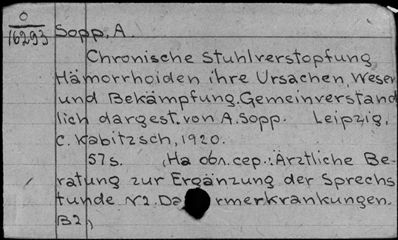 0
16293
Sopp, A.
Chronische Stuhlverstopfung,
Hämorrhoiden ihre Ursachen, Wesen
und Bekämpfung. Gemeinverständ
lich dargest. von A. Sopp. Leipzig,
C. Kabitzsch, 1920.
57 s. (На обл. сер.: Ärztliche Be-
ratung zur Ergänzung der Sprechs
tunde N2. Da rmerkrankungen.
B2)